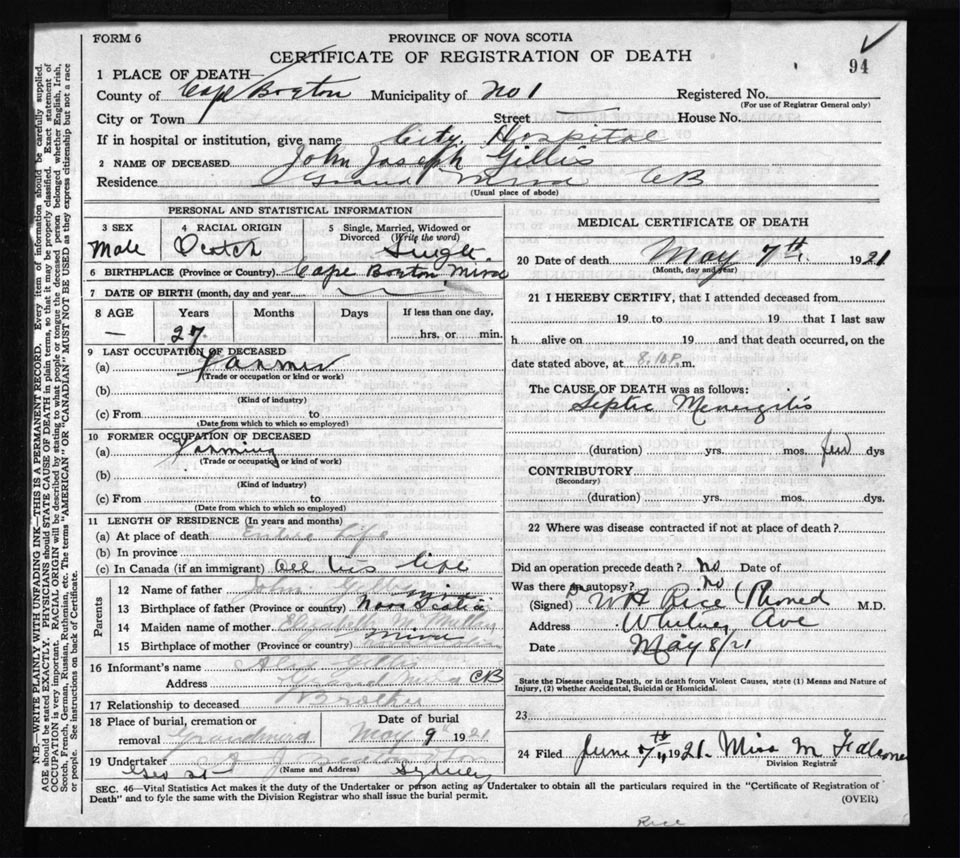 FORM 6
PROVINCE OF NOVA SCOTIA
CERTIFICATE OF REGISTRATION OF DEATH
94
1 PLACE OF DEATH—
County of Cape Breton Municipality of No 1 Registered No.
(For use of Registrar General only)
City or Town Street House No.
If in hospital or institution, give name City Hospital
2 NAME OF DECEASED John Joseph Gillis
Residence Grand Mira CB
(Usual place of abode)
PERSONAL AND STATISTICAL INFORMATION
3 SEX Male
4 RACIAL ORIGIN Scotch
5 Single, Married, Widowed or Divorced (Write the word) Single
6 BIRTHPLACE (Province or Country) Cape Breton Mira
7 DATE OF BIRTH (month, day and year)
8 AGE Years Months Days If less than one day,
— 27 hrs. or min.
9 LAST OCCUPATION OF DECEASED
(a) Farmer
(Trade or occupation or kind of work)
(b)
(Kind of industry)
(c) From to
(Date from which to which so employed)
10 FORMER OCCUPATION OF DECEASED
(a) Farming
(Trade or occupation or kind of work)
(b)
(Kind of industry)
(c) From to
(Date from which to which so employed)
11 LENGTH OF RESIDENCE (In years and months)
(a) At place of death Entire Life
(b) In province
(c) In Canada (if an immigrant) all his life
Parents
12 Name of father John Gillis
13 Birthplace of father (Province or country) Mira Nova Scotia
14 Maiden name of mother Elizabeth
15 Birthplace of mother (Province or country) Mira
16 Informant's name Alex Gillis
Address Grand Mira CB
17 Relationship to deceased Brother
18 Place of burial, cremation or removal Grand Mira
Date of burial May 9 1921
19 Undertaker A. J.
(Name and Address)
Geo St Sydney
MEDICAL CERTIFICATE OF DEATH
20 Date of death May 7th 1921
(Month, day and year)
21 I HEREBY CERTIFY, that I attended deceased from
19 to 19 that I last saw
h alive on 19 and that death occurred, on the
date stated above, at 8.10 P. m.
The CAUSE OF DEATH was as follows:
Septic Meningitis
(duration) yrs. mos. few dys
CONTRIBUTORY
(Secondary)
(duration) yrs. mos. dys.
22 Where was disease contracted if not at place of death?
Did an operation precede death? no Date of
Was there an autopsy? no
(Signed) Dr W H Rice (Phoned M.D.
Address Whitney Ave
Date May 8/21
State the Disease causing Death, or in death from Violent Causes, state (1) Means and Nature of
Injury, (2) whether Accidental, Suicidal or Homicidal.
23
24 Filed June 7th 1921. Miss M
Division Registrar
SEC. 46—Vital Statistics Act makes it the duty of the Undertaker or person acting as Undertaker to obtain all the particulars required in the "Certificate of Registration of
Death" and to fyle the same with the Division Registrar who shall issue the burial permit.
(OVER)
Rice
N.B.—WRITE PLAINLY WITH UNFADING INK—THIS IS A PERMANENT RECORD. Every item of information should be carefully supplied.
AGE should be stated EXACTLY. PHYSICIANS should STATE CAUSE OF DEATH in plain terms, so that it may be properly classified. Exact statement of
OCCUPATION is very important. RACIAL ORIGIN will be described by stating to what people or tongue the deceased person belonged whether English, Irish,
Scotch, French, German, Russian, Ruthenian, etc. The terms "AMERICAN" OR "CANADIAN" MUST NOT BE USED as they express citizenship but not a race
or people. See instructions on back of Certificate.